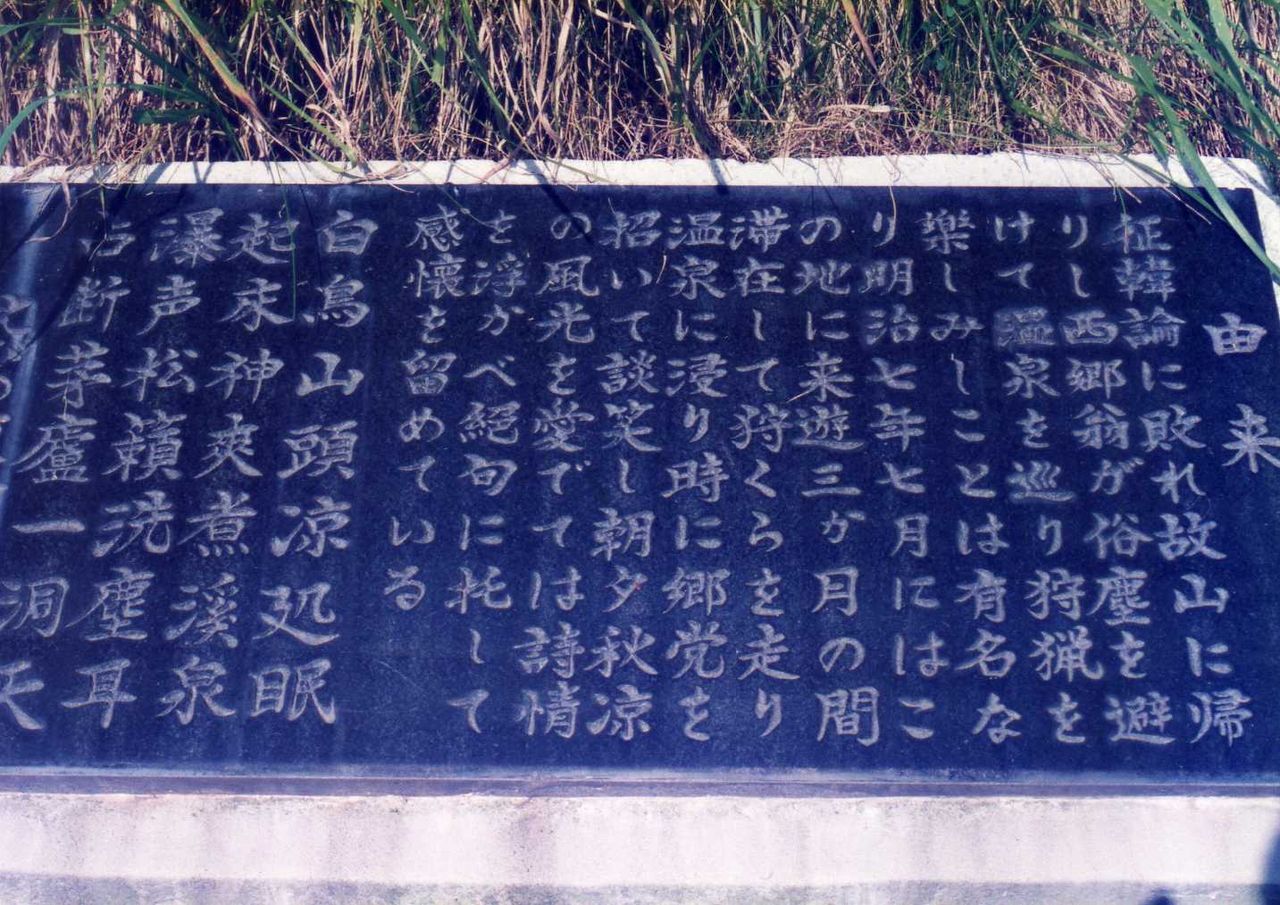 由来
征韓論に敗れ故山に帰
りし西郷翁が俗塵を避
けて温泉を巡り狩猟を
楽しみしことは有名な
り明治七年七月にはこ
の地に来遊三か月の間
滞在して狩くらを走り
温泉に浸り時に郷党を
招いて談笑し朝夕秋凉
の風光を愛でては詩情
を浮かべ絕句に托して
感懐を留めている
白鳥山頭凉処眠
起来神爽煮渓泉
瀑声松籟洗塵耳
占断茅廬一洞天